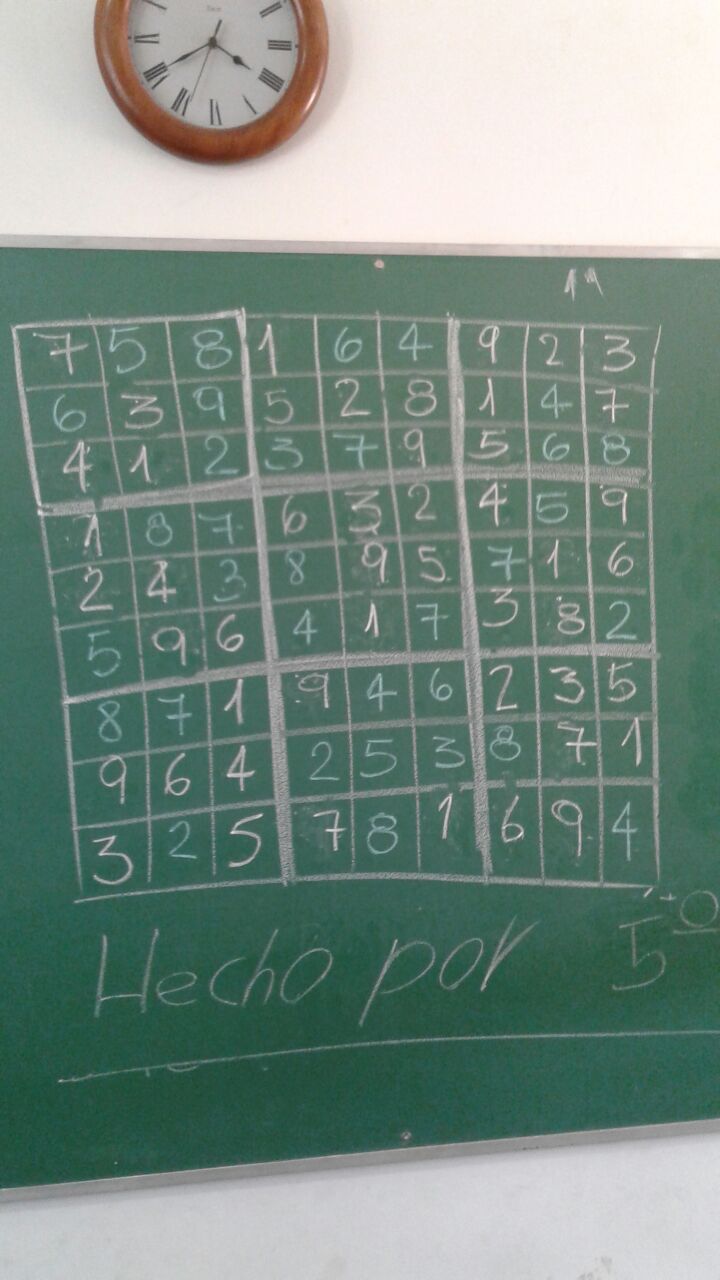 7 5 8 1 6 4 9 2 3
6 3 9 5 2 8 1 4 7
4 1 2 3 7 9 5 6 8
1 8 7 6 3 2 4 5 9
2 4 3 8 9 5 7 1 6
5 9 6 4 1 7 3 8 2
8 7 1 9 4 6 2 3 5
9 6 4 2 5 3 8 7 1
3 2 5 7 8 1 6 9 4
Hecho por 5º